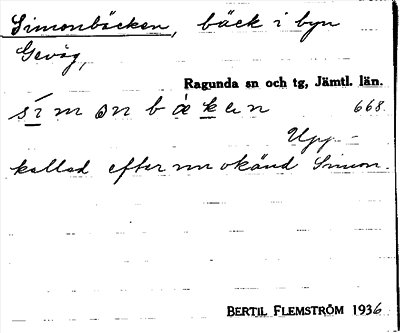 Simonbäcken, bäck i byn
Gevåg,
Ragunda sn och tg, Jämtl. län.
simɷnbæken 668.
Upp-
kallad efter nn okänd Simon.
BERTIL FLEMSTRÖM 1936